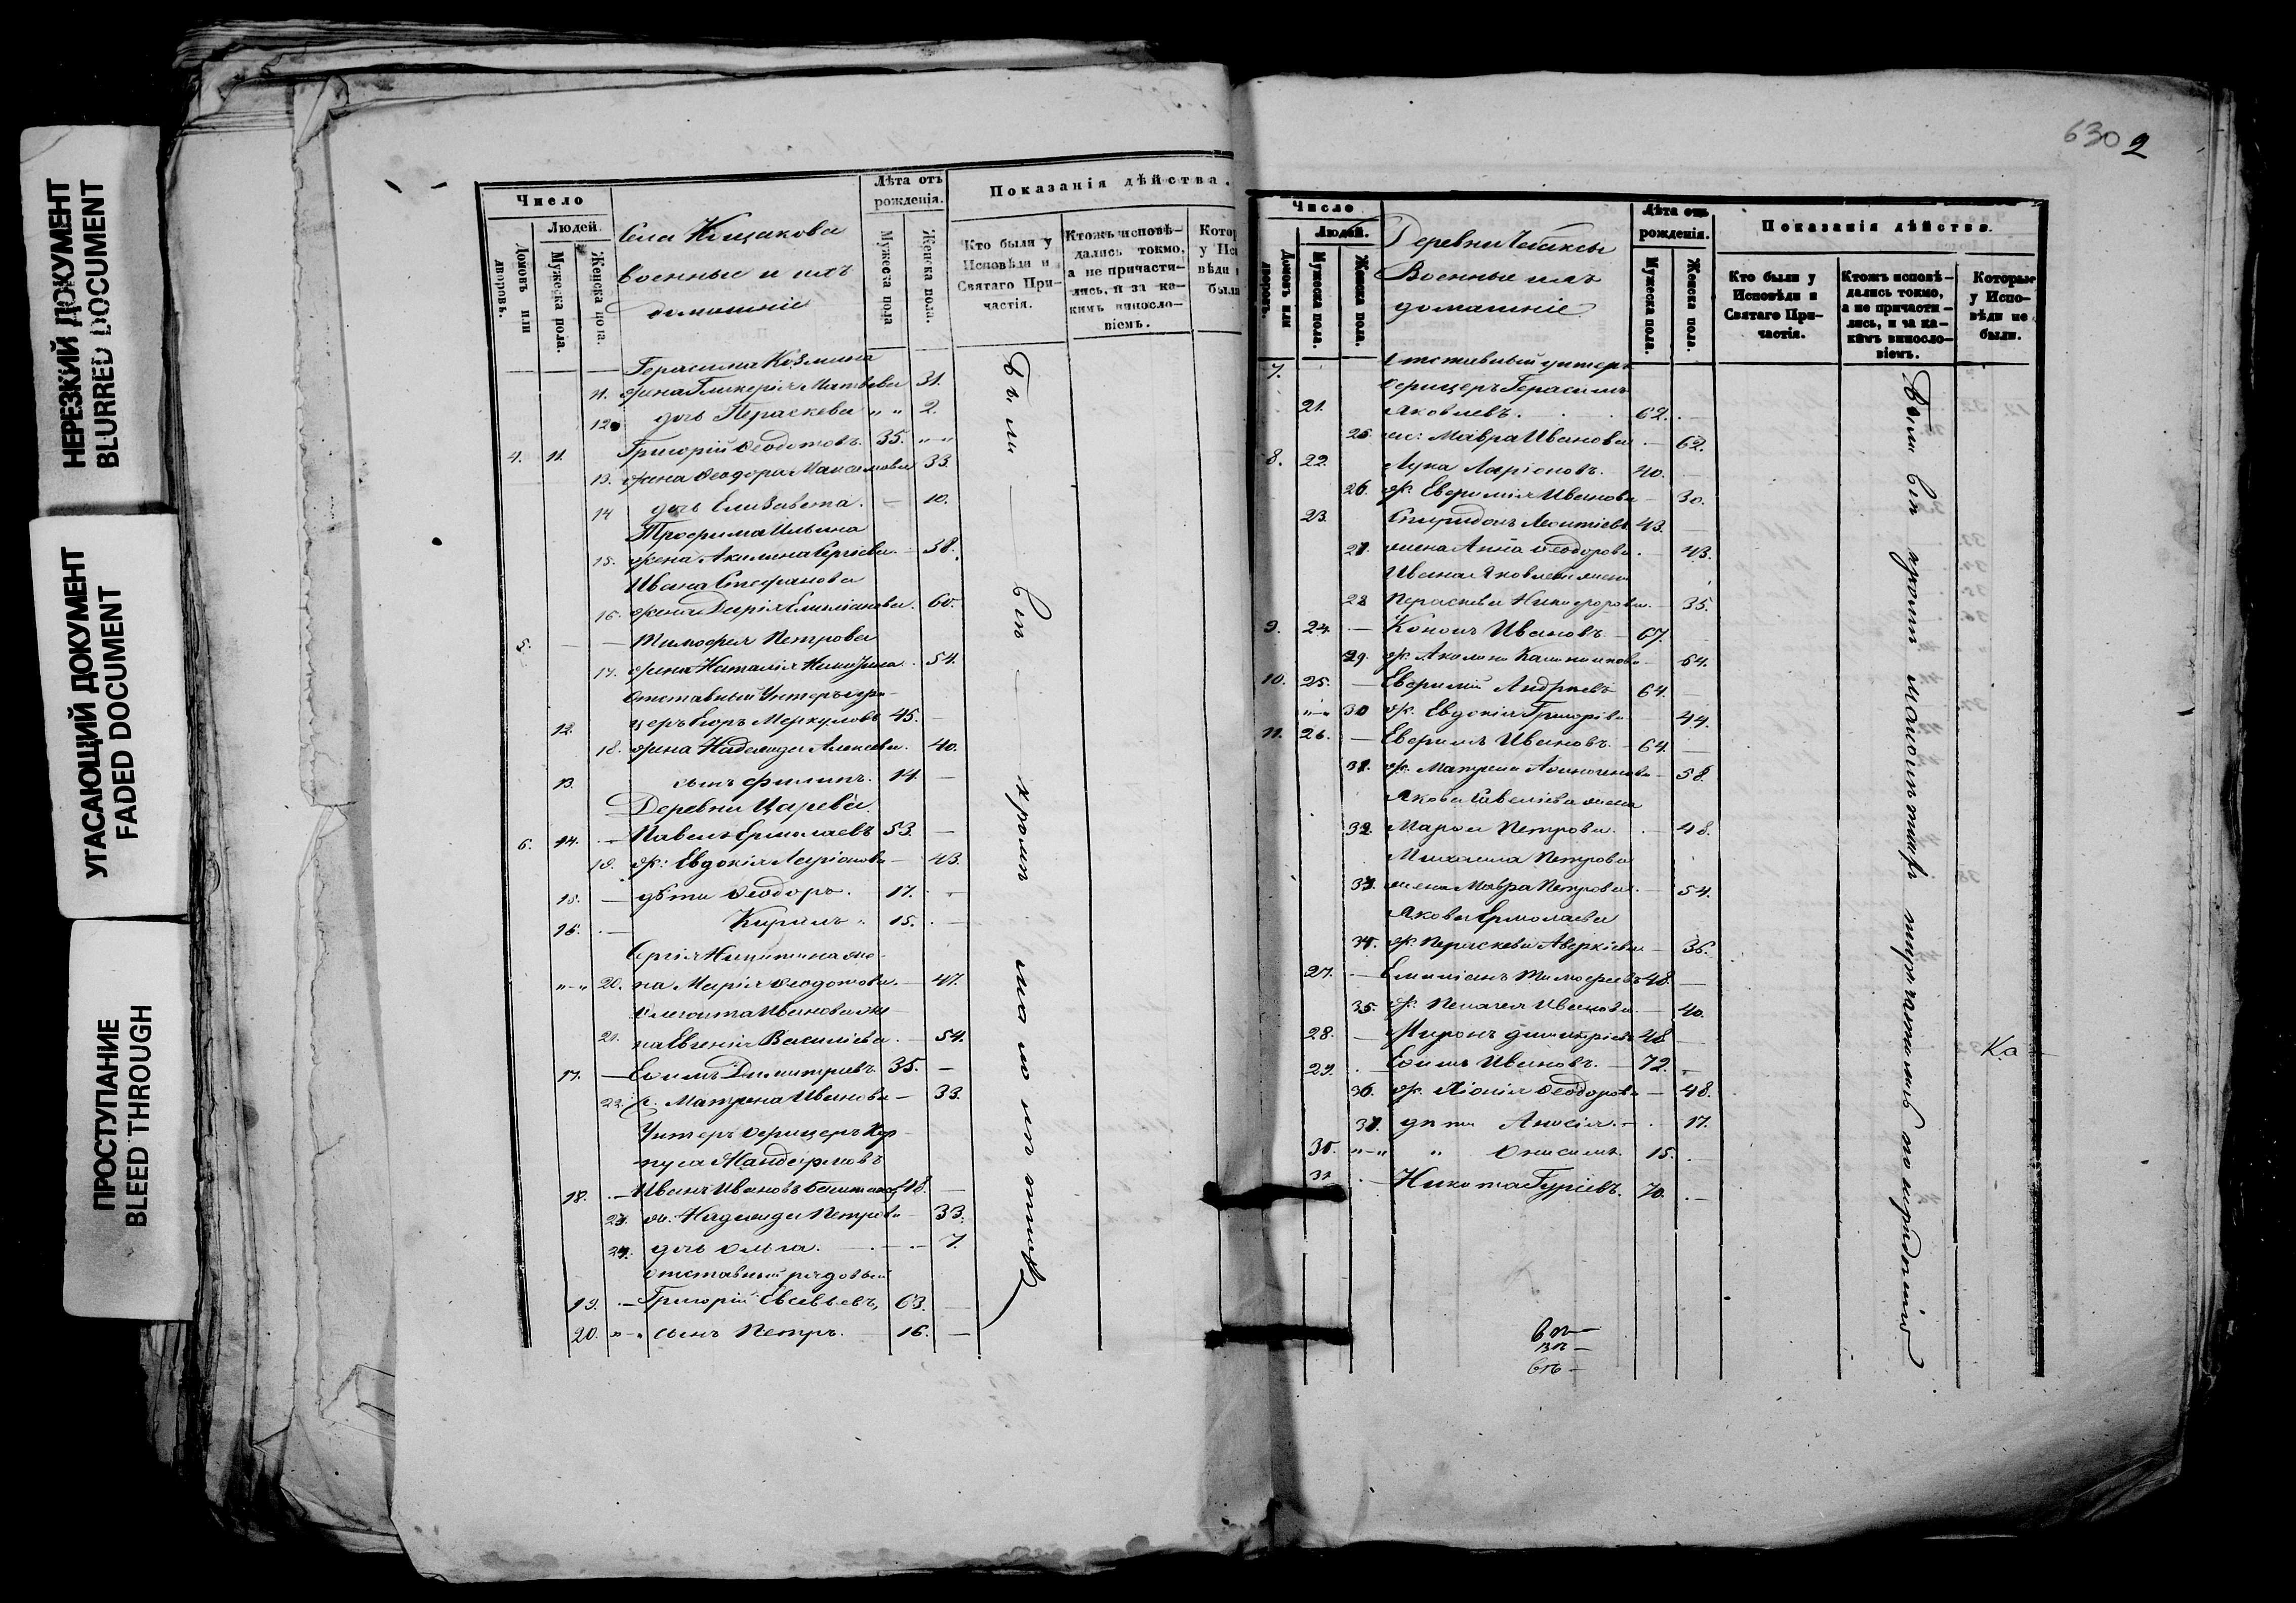 НЕРЕЗКИЙ ДОКУМЕНТ
BLURRED DOCUMENT
УГАСАЮЩИЙ ДОКУМЕНТ
FADED DOCUMENT
ПРОСТУПАНИЕ
BLEED THROUGH
Число
Людей.
Домовъ или дворовъ.
Мужеска пола.
Женска пола.
Села
военные и ихъ
домашніе
Лѣта отъ рожденія.
Мужеска пола
Женска пола.
Показанія дѣйства.
Кто были у Исповѣди и Святаго Причастія.
Ктожъ исповѣдались токмо, а не причастились, и за какимъ винословіемъ.
Герасима Козмина
11. жена Гликерія Матвѣева 31.
12 дочь Параскева „ „ 2.
4. 11. Григорій Ѳеодотовъ. 35. „ „
13. жена Ѳеодора Максимова 33.
14 дочь Елизавета. — 10.
Трофима Ильина
15. жена Акилина Сергіева. — 38.
Ивана Стефанова
16. жена Дарія Емиліанова. 60.
5. — — Тимофея Петрова
17. жена Наталія . 54.
Отставный Унтеръ офи-
12. церъ Егоръ Меркуловъ 45. —
18. жена Надежда Алексѣева. 40.
13. сынъ Филипъ. 14. —
Деревни Царева
6. 14. — Павелъ Ермолаевъ 53. —
19. ж: Евдокія Ларіонова — 43.
15. — дѣти Ѳеодоръ. 17. -
16. — Кирилъ. 15. —
Сергія Никитина же-
„-„ 20. на Марія Ѳеодотова. — 47.
Ивановаже-
21. на Евгенія Василіева. — 54.
17. — Димитріевъ 35. —
22. ж. Матрена Иванова — 33.
Унтеръ Офицеръ Кор-
пуса Жандармовъ
18. — Иванъ Ивановъ 48. —
23. ж. Надежда Петрова 33.
24. дочь Ольга. — — 7.
Отставный рядовый
19. — Григорій Евсевьевъ, 63. —
20. „-„ сынъ Петръ. 16. —
Были
630 2
Число
Людей.
Домовъ или дворовъ.
Мужеска пола.
Женска пола.
Деревни Чебаксы
Военные ихъ
домашніе
Лѣта отъ рожденія.
Мужеска пола.
Женска пола.
Показанія дѣйства.
Кто были у Исповѣди и Святаго Причастія.
Ктожъ исповѣдались токмо, а не причастились, и за какимъ винословіемъ.
Которые у Исповѣди не были.
7. Отставный унтеръ
офицеръ Герасимъ
21. Яковлевъ. 62. —
25. Мавра Иванова — 62.
8. 22. Лука Ларіоновъ. 40. —
26. ж. Евфимія Иванова — 30.
23. Спиридонъ Леонтіевъ 43. —
27. жена Анна Ѳеодорова. — 43.
Ивана Яковлева жена
28 Параскева Никифорова. 35.
9. 24. — Кононъ Ивановъ. — 67. —
29. ж. Акилина 64.
10. 25. — Евфимій Андреевъ 64. —
„-„ 30 ж. Евдокія Григорьева 44.
11. 26. — Ефремъ Ивановъ. — 64. —
31. ж. Матрена — 58.
Якова Савеліева жена
32. Марѳа Петрова. — 48.
Михаила Петрова
33. жена Мавра Петрова. — 54.
Якова Ермолаева
34. ж. Параскева Аверкіева — 36.
27. — Емиліанъ Тимофеевъ 48. —
35. ж. Пелагея Иванова. — 40.
28. — Миронъ Димитріевъ 48 —
29. — Ивановъ. — 72. —
36. ж. Ѳеодорова — 48.
37. дѣти . — 17.
30. „-„ „ Онисимъ. 15. —
31 — Никита Гуріевъ. 70. —
Были
Ка